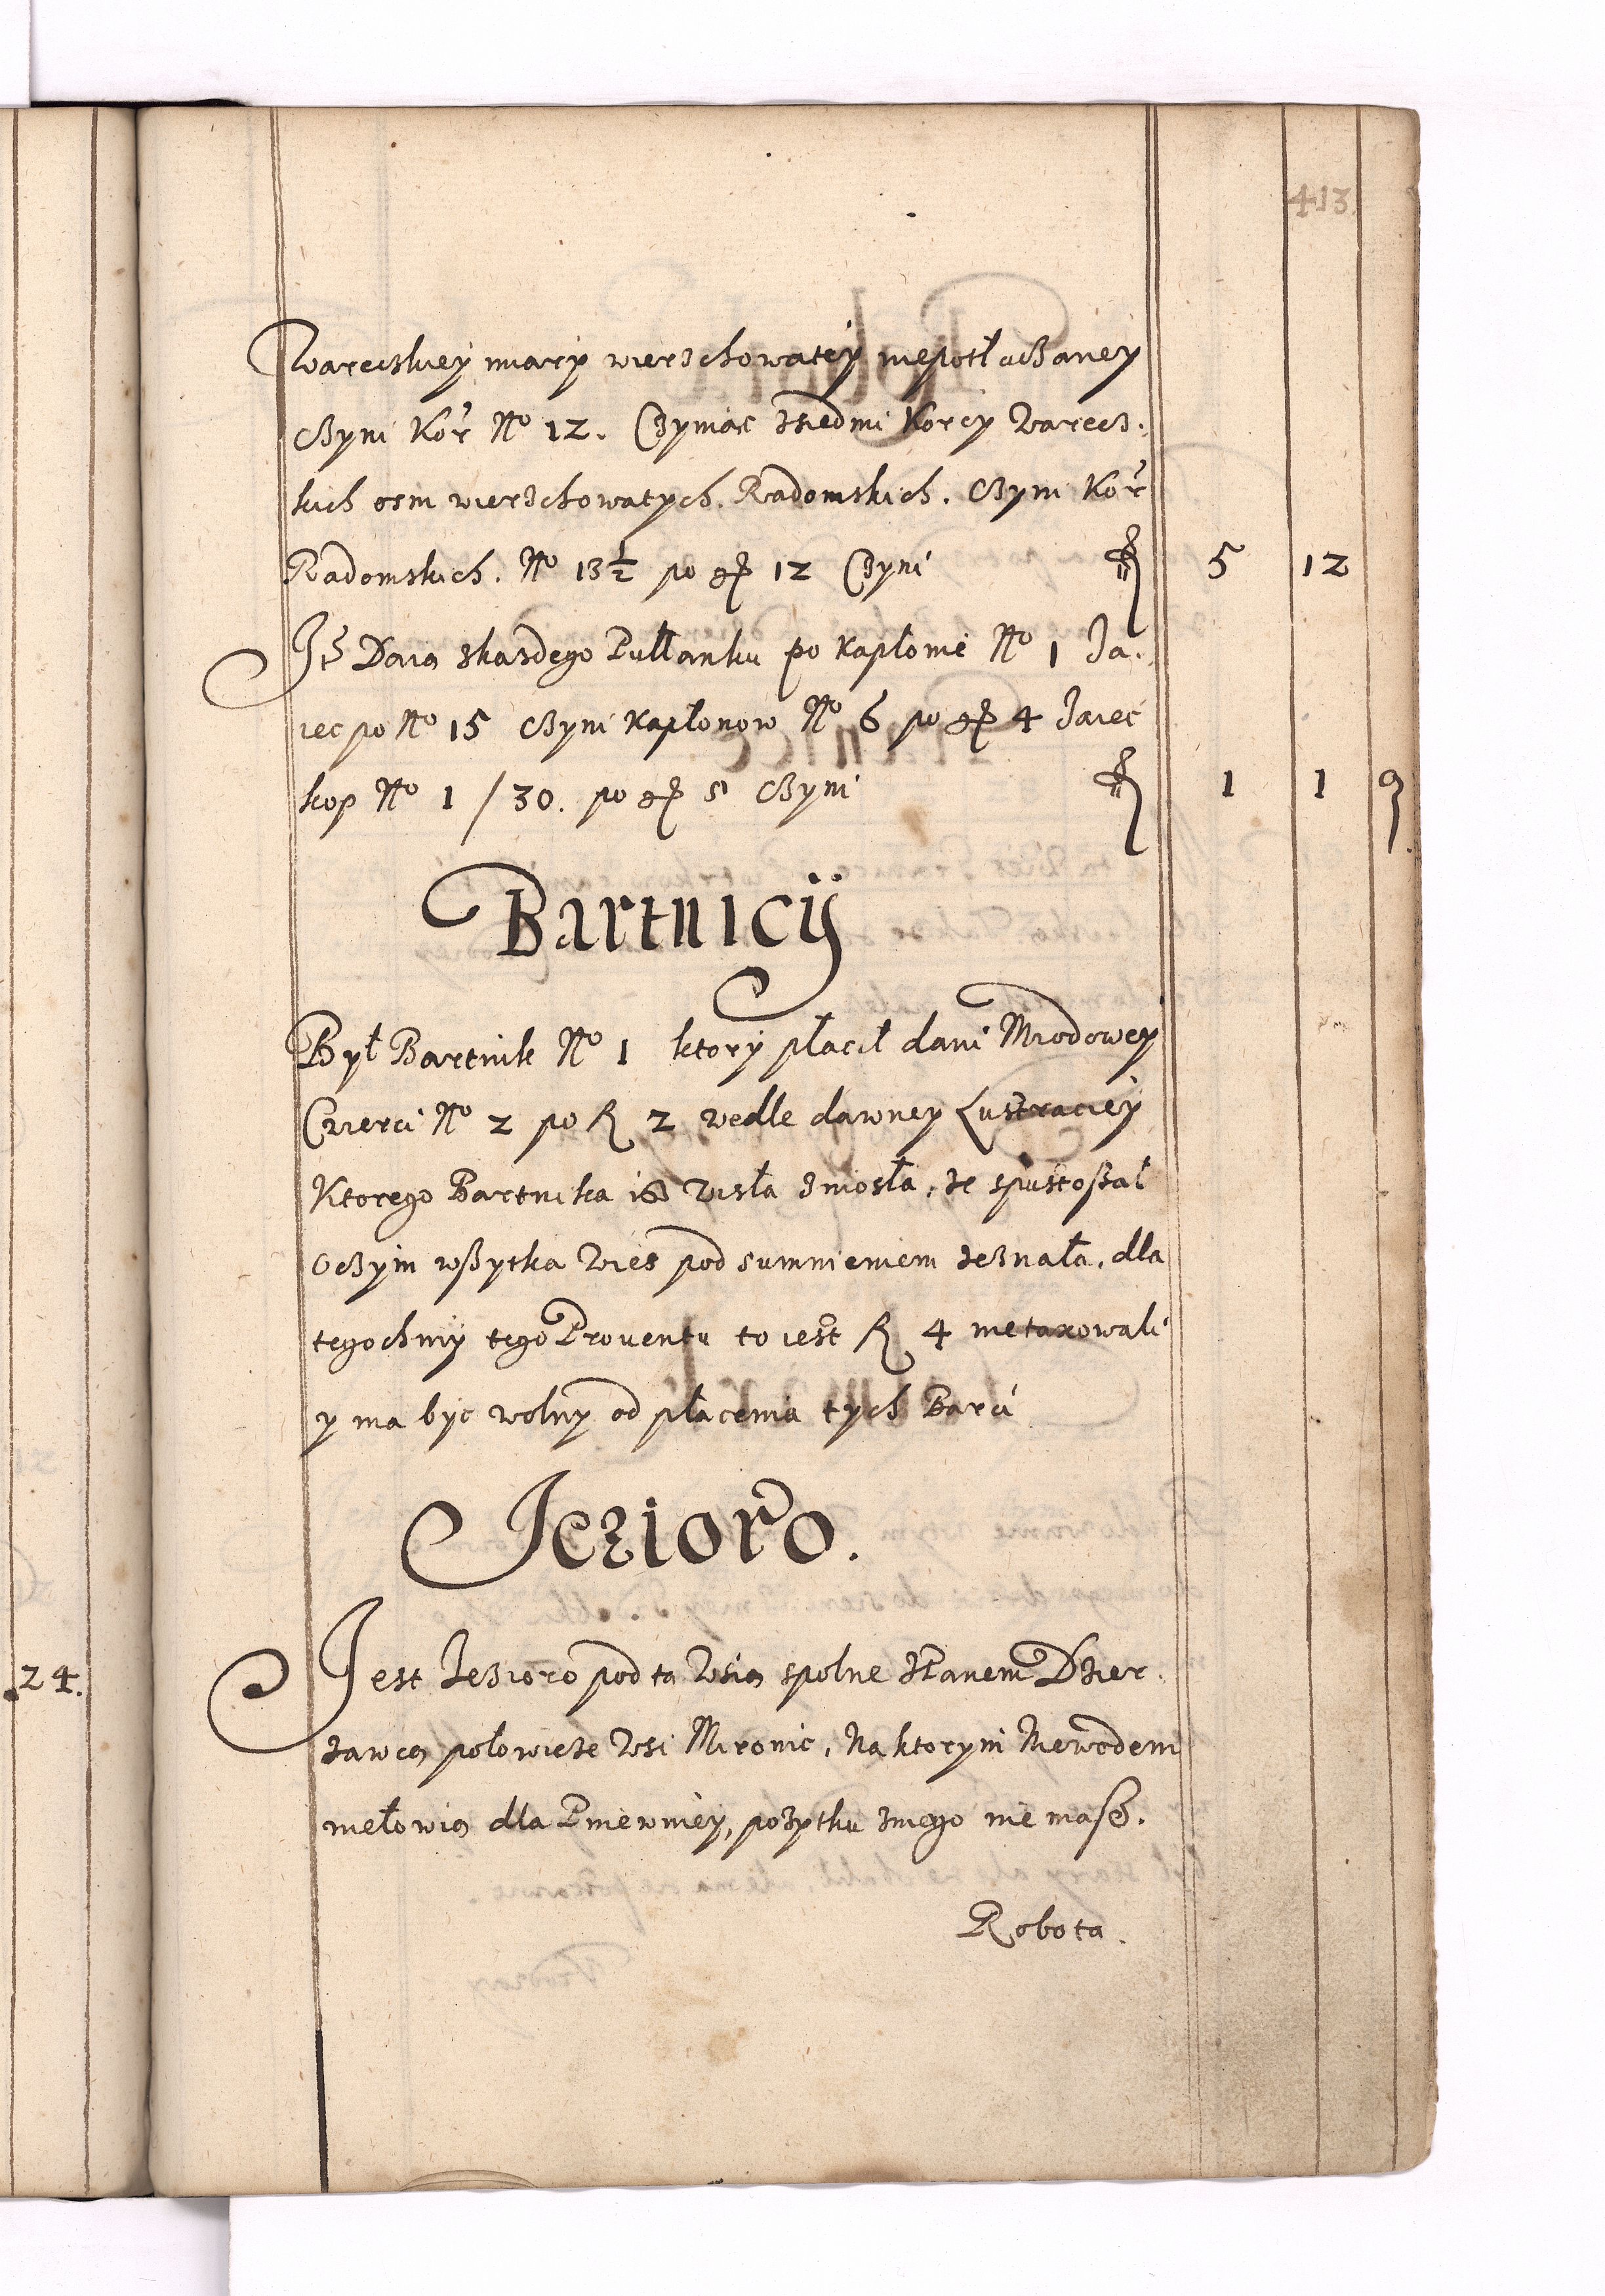 413
Wareckiey miary wierzchowatey niepotłuczaney
czyni Kor No 12. Czyniąc siedmi Korcy Warecz.
kich osm wierzchowatych Radomskich. czyni Kor
Radomskich. No 13½ po gr 12 Czyni fl 5 12
It Daią zkazdego Pułłanku po Kapłonie No 1 Ja.
iec po No 15 czyni Kapłonow No 6 po gr 4 Jaiec
kop No 1/30. po gr 5 czyni fl 1 1 9
Bartnicÿ
Był Bartnik No 1 ktory płacił dani Miodowey
Czierci No 2 po fl 2 wedle dawney Lustraciey
Ktorego Bartnika isz Wisła zniosła, ze spustoßał
oczym wßytka Wies pod sumnieniem zeznała, dla
tegochmy tego Prouentu to iest fl 4 nietaxowali
y ma byc wolny od płacenia tych Barci
Jezioro.
Jest Jezioro pod tą Wsią spolne zPanem Dzier.
zawcą połowicze Wsi Mironic, Na ktorym Niewodem
niełowią dla Pniewniey, pozytku zniego nie masz.
Robota.
24.